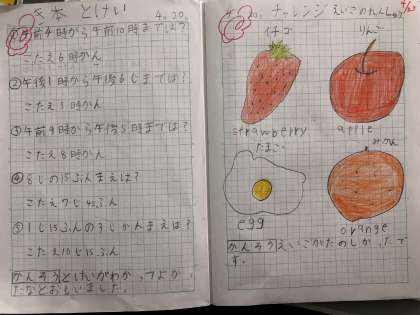 本 とけい 4.20.
①午前4時から午前10時までは?
こたえ6時かん
②午後1時から午後6じまでは?
こたえ5時かん
③午前9時から午後5時までは?
こたえ8時かん
④8じの15ふんまえは?
こたえ7じ45ふん
⑤1じ15ふんの3じかんまえは?
こたえ10じ15ふん
かんそうとけいがわかってよか
たなとおもいました。
チャレンジえいごのれんしゅう
イチゴ
りんご
strawberry
apple
たまご
みかん
egg
orange
かんそうえいごがたのしかったで
す。